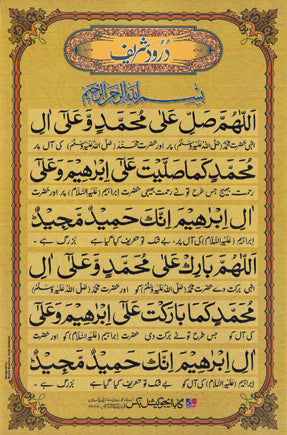 دُرُود شریف
بِسْمِ اللّٰهِ الرَّحْمٰنِ الرَّحِيْمِ
اَللّٰهُمَّ صَلِّ عَلٰى مُحَمَّدٍ وَّعَلٰٓى اٰلِ
الٰہی حضرت محمد (صلی اللہ علیہ وسلم) پر اور حضرت محمد (صلی اللہ علیہ وسلم) کی آل پر
مُحَمَّدٍ كَمَا صَلَّيْتَ عَلٰٓى اِبْرٰهِيْمَ وَعَلٰٓى
رحمت بھیج جس طرح تو نے رحمت بھیجی حضرت ابراہیم (علیہ السلام) پر اور حضرت
اٰلِ اِبْرٰهِيْمَ اِنَّكَ حَمِيْدٌ مَّجِيْدٌ
ابراہیم (علیہ السلام) کی آل پر، بے شک تو تعریف کیا گیا ہے بزرگ ہے -
اَللّٰهُمَّ بَارِكْ عَلٰى مُحَمَّدٍ وَّعَلٰٓى اٰلِ
الٰہی برکت دے حضرت محمد (صلی اللہ علیہ وسلم) کو اور حضرت محمد (صلی اللہ علیہ وسلم) کی
مُحَمَّدٍ كَمَا بَارَكْتَ عَلٰٓى اِبْرٰهِيْمَ وَعَلٰٓى
کی آل کو جس طرح تو نے برکت دی حضرت ابراہیم (علیہ السلام) کو اور حضرت
اٰلِ اِبْرٰهِيْمَ اِنَّكَ حَمِيْدٌ مَّجِيْدٌ
ابراہیم (علیہ السلام) کی آل کو بے شک تو تعریف کیا گیا ہے بزرگ ہے -